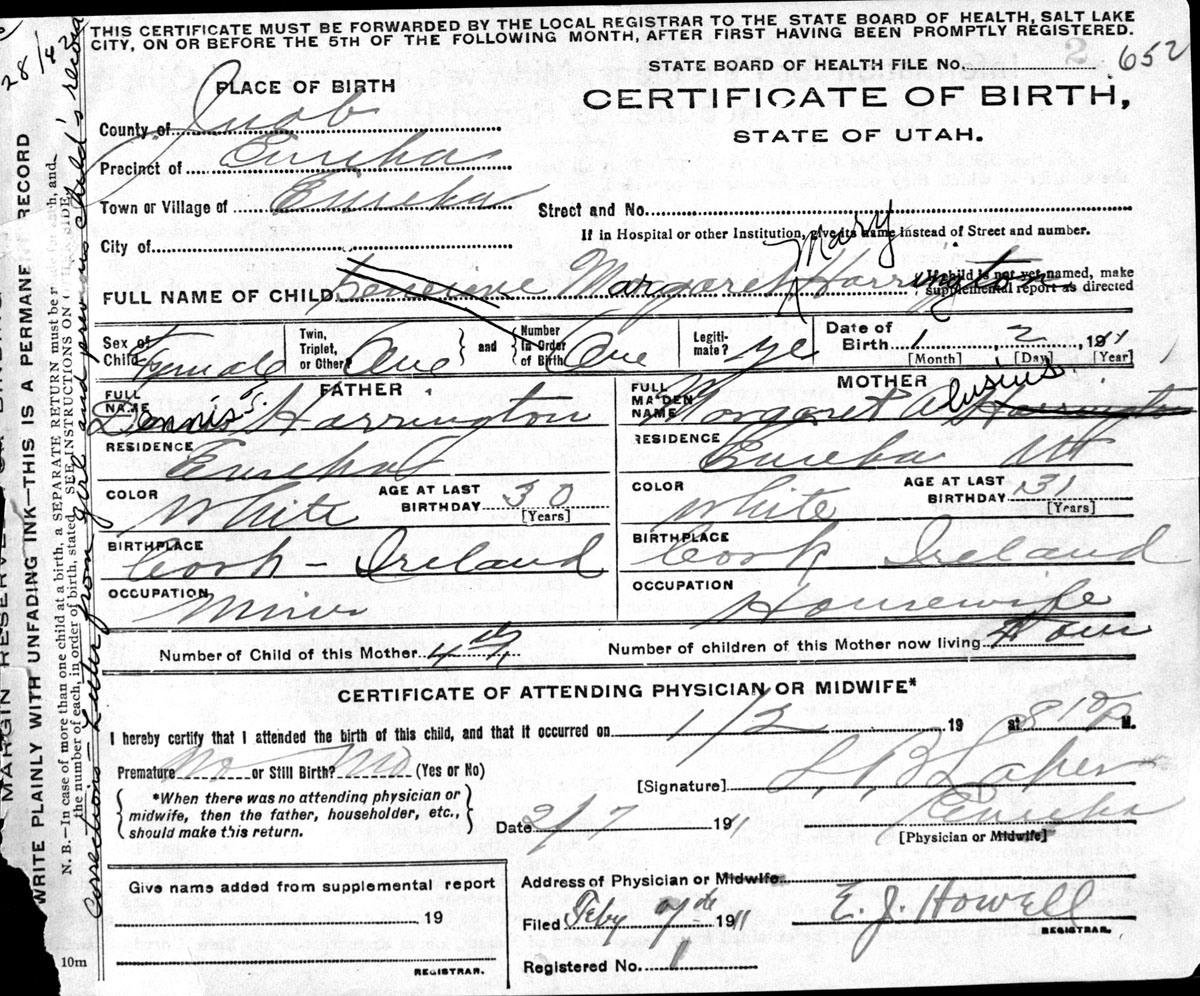 THIS CERTIFICATE MUST BE FORWARDED BY THE LOCAL REGISTRAR TO THE STATE BOARD OF HEALTH, SALT LAKE
CITY, ON OR BEFORE THE 5TH OF THE FOLLOWING MONTH, AFTER FIRST HAVING BEEN PROMPTLY REGISTERED.
STATE BOARD OF HEALTH FILE No. 652
PLACE OF BIRTH
CERTIFICATE OF BIRTH,
STATE OF UTAH.
County of Juab
Precinct of Eureka
Town or Village of Eureka
Street and No.
City of
If in Hospital or other Institution, give its name instead of Street and number.
Mary
FULL NAME OF CHILD Margaret Harrington
If child is not yet named, make
supplemental report as directed
Sex of Child Female
Twin, Triplet, or Other? One
and
Number In Order of Birth One
Legitimate? yes
Date of Birth 1 2 1911
[Month] [Day] [Year]
FATHER
FULL NAME Dennis J. Harrington
RESIDENCE Eureka
COLOR White
AGE AT LAST BIRTHDAY 30
[Years]
BIRTHPLACE Cork - Ireland
OCCUPATION Miner
MOTHER
FULL MAIDEN NAME Margaret Harrington
RESIDENCE Eureka Ut
COLOR White
AGE AT LAST BIRTHDAY 31
[Years]
BIRTHPLACE Cork Ireland
OCCUPATION Housewife
Number of Child of this Mother 4th
Number of children of this Mother now living Four
CERTIFICATE OF ATTENDING PHYSICIAN OR MIDWIFE*
I hereby certify that I attended the birth of this child, and that it occurred on 1/2 19 at 8 10 P M.
Premature No or Still Birth? No (Yes or No)
*When there was no attending physician or
midwife, then the father, householder, etc.,
should make this return.
[Signature] L. B. Laker
Date 2/7 1911
Eureka
[Physician or Midwife]
Give name added from supplemental report
19
REGISTRAR.
10m
Address of Physician or Midwife
Filed Feby 1911 E. J. Howell
REGISTRAR.
Registered No. 1
MARGIN RESERVED
WRITE PLAINLY WITH UNFADING INK—THIS IS A PERMANENT RECORD
N. B.—In case of more than one child at a birth, a SEPARATE RETURN must be for each, and
the number of each, in order of birth, stated. SEE INSTRUCTIONS ON SIDE.
Corrections - Letter from girl and previous child's record
28/4